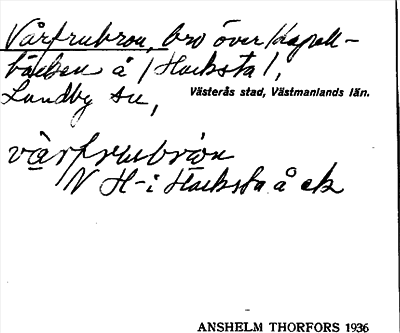 Vårfrubron, bro över Kapell-
bäcken å /Hacksta/,
Lundby sn, Västerås stad, Västmanlands län.
vårfrubrôn
N H-i Hacksta å ek
ANSHELM THORFORS 1936